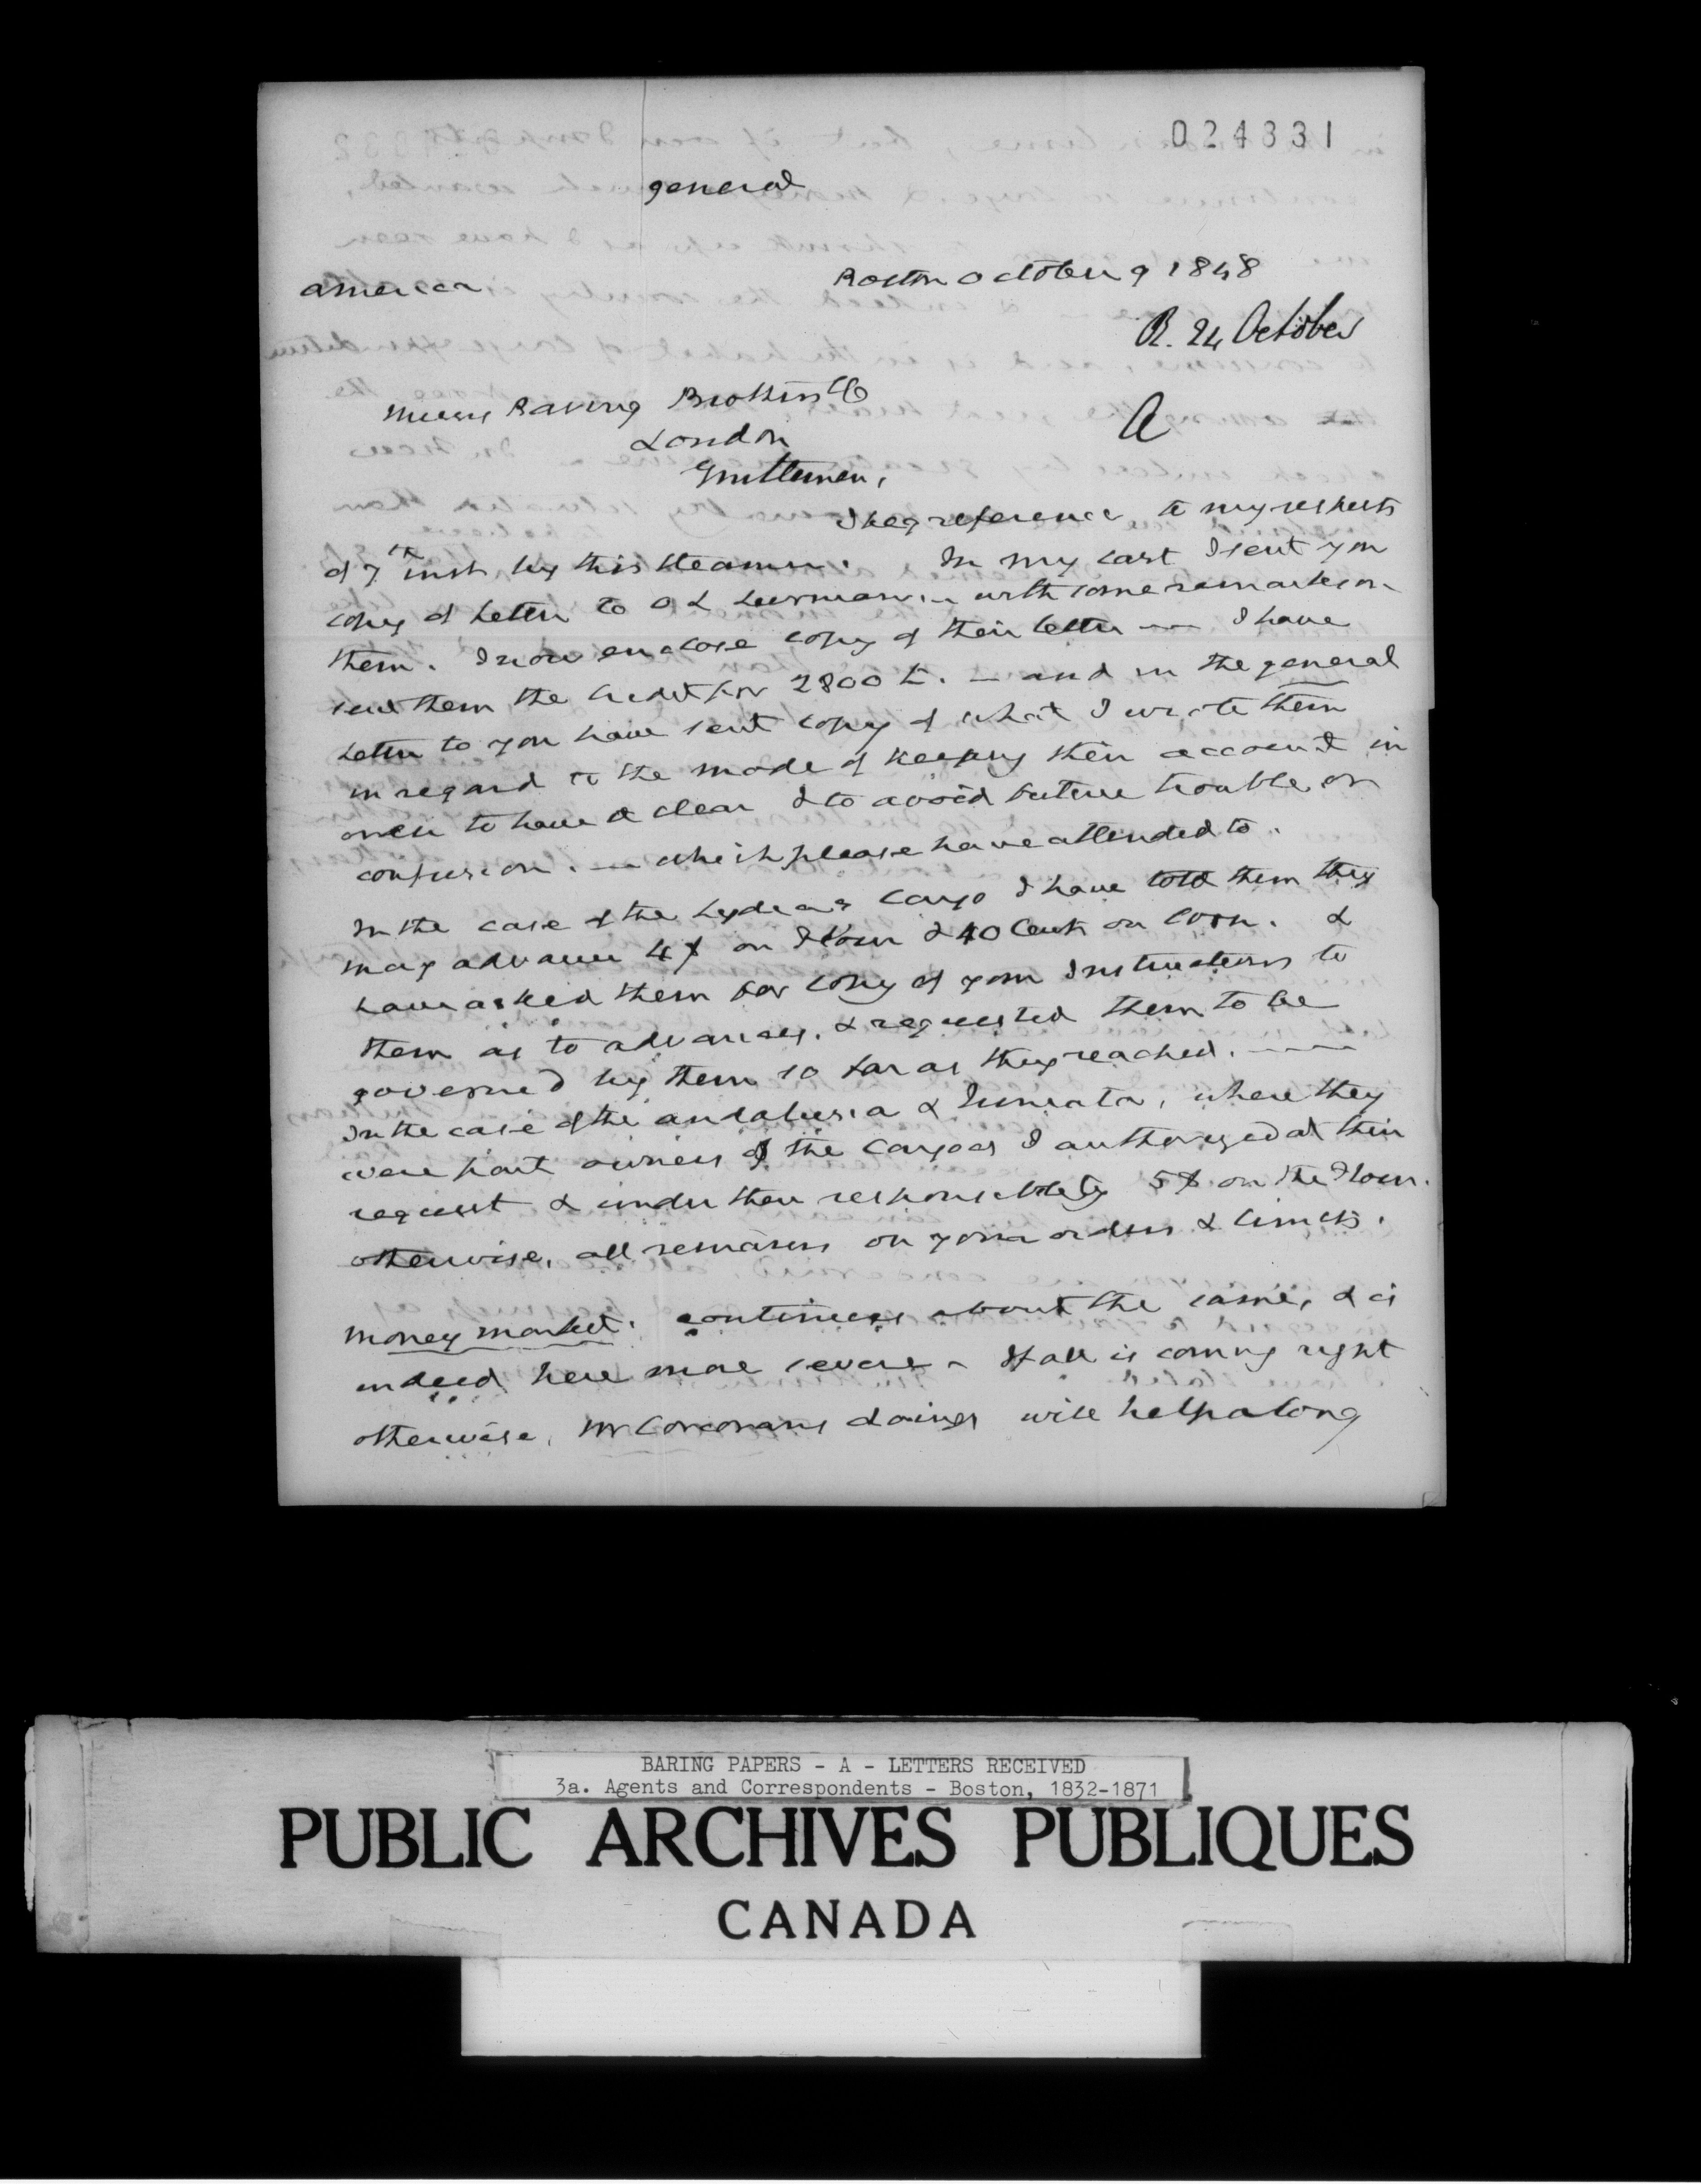 024331
general
america
Boston October 9 1848
R. 24 October
Messrs Baring Brothers & Co
A
London
Gentlemen,
I beg reference to my respects
of 7th inst by this steamer. In my last I sent you
copy of letter to O L with some remarks on
them. I now enclose copy of their letter — I have
sent them the credit for 2800 £. — and in the general
letter to you have sent copy of what I wrote them
in regard to the mode of keeping their account in
order to have a clear & to avoid future trouble or
confusion. — which please have attended to.
In the case of the Cargo I have told them they
may advance 4$ on Flour & 40 Cents on Corn. &
have asked them for copy of your Instructions to
them as to advances. & requested them to be
governed by them so far as they reached. —
In the case of the andalusia &, where they
were part owners of the Cargoes I authorized at their
request & under their responsibility 5$ on the Flour.
otherwise, all remains on your orders & limits.
Money market. continues about the same, & is
indeed here more severe - If all is coming right
otherwise, Mr Corcorans doings will help along
BARING PAPERS - A - LETTERS RECEIVED
3a. Agents and Correspondents - Boston, 1832-1871
PUBLIC ARCHIVES PUBLIQUES
CANADA